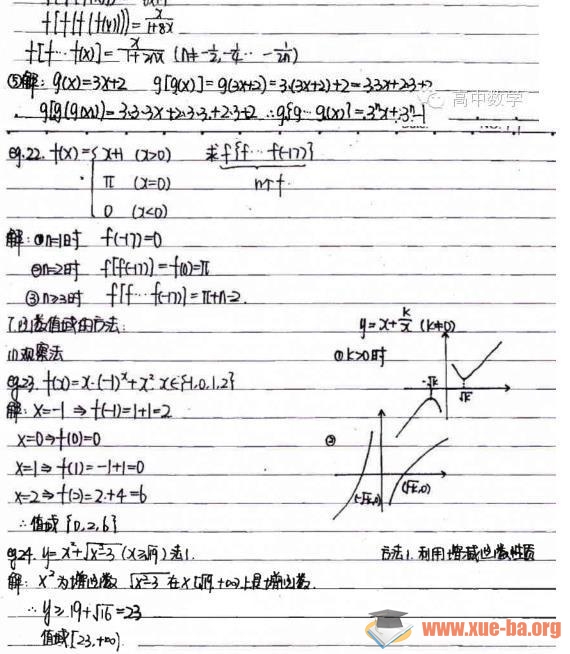 f{f[f(f(x))]}=x/(1+8x)
f[f…f(x)]=x/(1+2nx) (n≠-1/2,-1/4…-1/2n)
⑤解: g(x)=3x+2 g[g(x)]=g(3x+2)=3·(3x+2)+2=3·3x+2·3+2
g[g(g(x))]=3·3·3x+2·3·3+2·3+2 ∴g{g…g(x)}=3ⁿx+3ⁿ-1
高中数学
eg.22. f(x)={x+1 (x>0) 求f{f…f(-17)}
π (x=0) n个f
0 (x<0)
解: ①n=1时 f(-17)=0
②n=2时 f[f(-17)]=f(0)=π
③n≥3时 f[f…f(-17)]=π+n-2.
7.求函数值域的方法: y=x+k/x (k≠0)
(1)观察法 ①k>0时
eg23. f(x)=x·(-1)ˣ+x² x∈{-1,0,1,2}
-√k √k
解: x=-1⇒f(-1)=1+1=2
x=0⇒f(0)=0 ②
x=1⇒f(1)=-1+1=0
x=2⇒f(2)=2+4=6 (-√k,0) (√k,0)
∴值域{0,2,6}
eg24. y=x²+√(x²-3) (x≥√19) 法1. 方法1.利用增减函数性质
解: x²为增函数 √(x²-3)在x[√19,+∞)上是增函数.
∴y≥19+√16=23
值域[23,+∞).
www.xue-ba.org